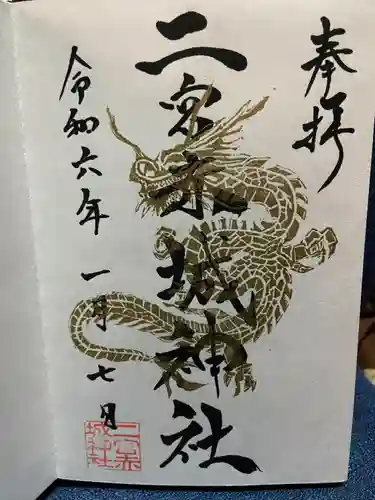 奉拝
二宮赤城神社
令和六年一月七日
二宮赤城神社